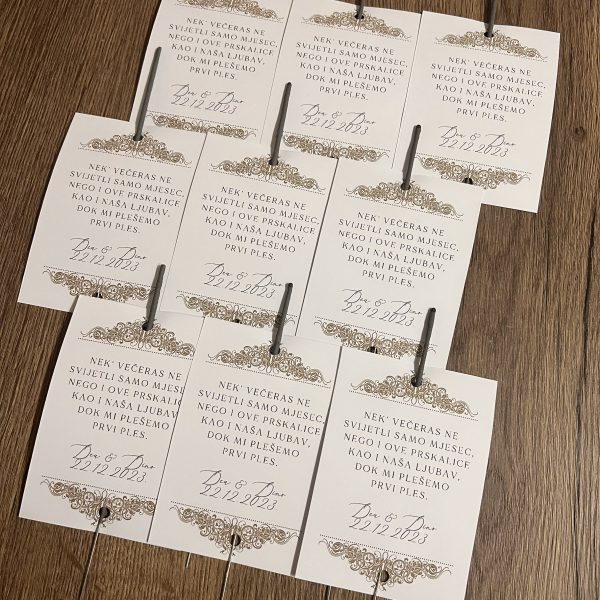 NEK' VEČERAS NE
SVIJETLI SAMO MJESEC,
NEGO I OVE PRSKALICE
KAO I NAŠA LJUBAV,
DOK MI PLEŠEMO
PRVI PLES.
Dea & Dino
22.12.2023
NEK' VEČERAS NE
SVIJETLI SAMO MJESEC,
NEGO I OVE PRSKALICE
KAO I NAŠA LJUBAV,
DOK MI PLEŠEMO
PRVI PLES.
Dea & Dino
22.12.2023
NEK' VEČERAS NE
SVIJETLI SAMO MJESEC,
NEGO I OVE PRSKALICE
KAO I NAŠA LJUBAV,
DOK MI PLEŠEMO
PRVI PLES.
Dea & Dino
22.12.2023
NEK' VEČERAS NE
SVIJETLI SAMO MJESEC,
NEGO I OVE PRSKALICE
KAO I NAŠA LJUBAV,
DOK MI PLEŠEMO
PRVI PLES.
Dea & Dino
22.12.2023
NEK' VEČERAS NE
SVIJETLI SAMO MJESEC,
NEGO I OVE PRSKALICE
KAO I NAŠA LJUBAV,
DOK MI PLEŠEMO
PRVI PLES.
Dea & Dino
22.12.2023
NEK' VEČERAS NE
SVIJETLI SAMO MJESEC,
NEGO I OVE PRSKALICE
KAO I NAŠA LJUBAV,
DOK MI PLEŠEMO
PRVI PLES.
Dea & Dino
22.12.2023
NEK' VEČERAS NE
SVIJETLI SAMO MJESEC,
NEGO I OVE PRSKALICE
KAO I NAŠA LJUBAV,
DOK MI PLEŠEMO
PRVI PLES.
Dea & Dino
22.12.2023
NEK' VEČERAS NE
SVIJETLI SAMO MJESEC,
NEGO I OVE PRSKALICE
KAO I NAŠA LJUBAV,
DOK MI PLEŠEMO
PRVI PLES.
Dea & Dino
22.12.2023
NEK' VEČERAS NE
SVIJETLI SAMO MJESEC,
NEGO I OVE PRSKALICE
KAO I NAŠA LJUBAV,
DOK MI PLEŠEMO
PRVI PLES.
Dea & Dino
22.12.2023